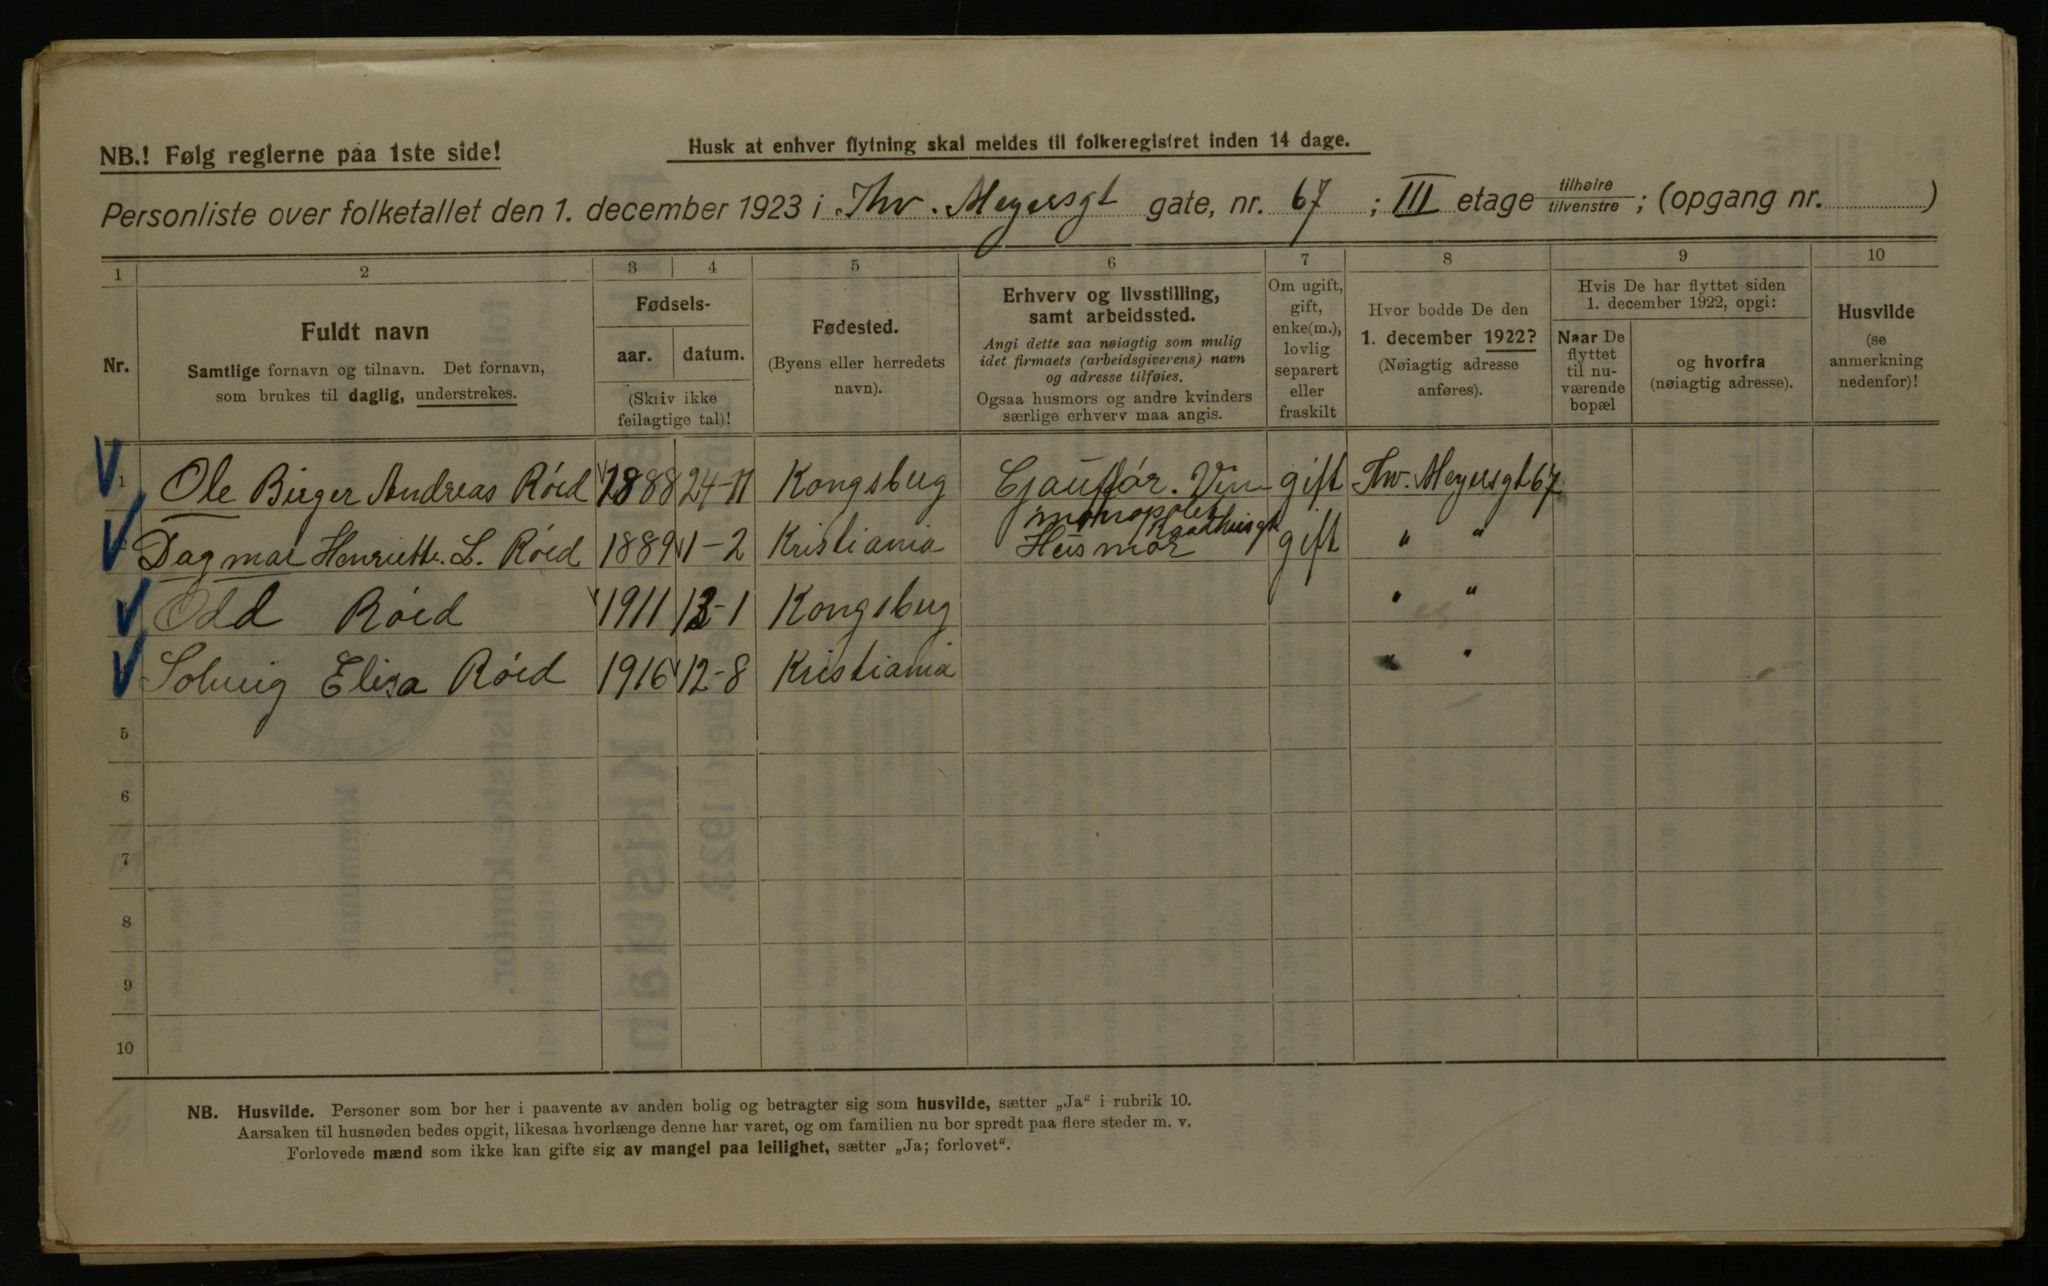 NB.! Følg reglerne paa 1ste side!
Husk at enhver flytning skal meldes til folkeregistret inden 14 dage.
Personliste over folketallet den 1. december 1923 i Thv. Meyersgt gate, nr. 67 ; III etage tilhøire tilvenstre ; (opgang nr. )
1 2 3 4 5 6 7 8 9 10
Nr.
Fuldt navn
Samtlige fornavn og tilnavn. Det fornavn,
som brukes til daglig, understrekes.
Fødsels-
aar. datum.
(Skriv ikke
feilagtige tal)!
Fødested.
(Byens eller herredets
navn).
Erhverv og livsstilling,
samt arbeidssted.
Angi dette saa nøiagtig som mulig
idet firmaets (arbeidsgiverens) navn
og adresse tilføies.
Ogsaa husmors og andre kvinders
særlige erhverv maa angis.
Om ugift,
gift,
enke(m.),
lovlig
separert
eller
fraskilt
Hvor bodde De den
1. december 1922?
(Nøiagtig adresse
anføres).
Hvis De har flyttet siden
1. december 1922, opgi:
Naar De
flyttet
til nu-
værende
bopæl
og hvorfra
(nøiagtig adresse).
Husvilde
(se
anmerkning
nedenfor)!
1 Ole Birger Andreas Róed 1888 24-11 Kongsberg Cjauffór. Vin gift Thv. Meyersgt 67
monopolet Raadhusgt
Dagmar Henriette. L. Róed 1889 1-2 Kristiania Husmor gift " "
Odd Róed 1911 13-1 Kongsberg " "
Solveig Elisa Róed 1916 12-8 Kristiania " "
5
6
7
8
9
10
NB. Husvilde. Personer som bor her i paavente av anden bolig og betragter sig som husvilde, sætter „Ja“ i rubrik 10.
Aarsaken til husnøden bedes opgit, likesaa hvorlænge denne har varet, og om familien nu bor spredt paa flere steder m. v.
Forlovede mænd som ikke kan gifte sig av mangel paa leilighet, sætter „Ja; forlovet“.